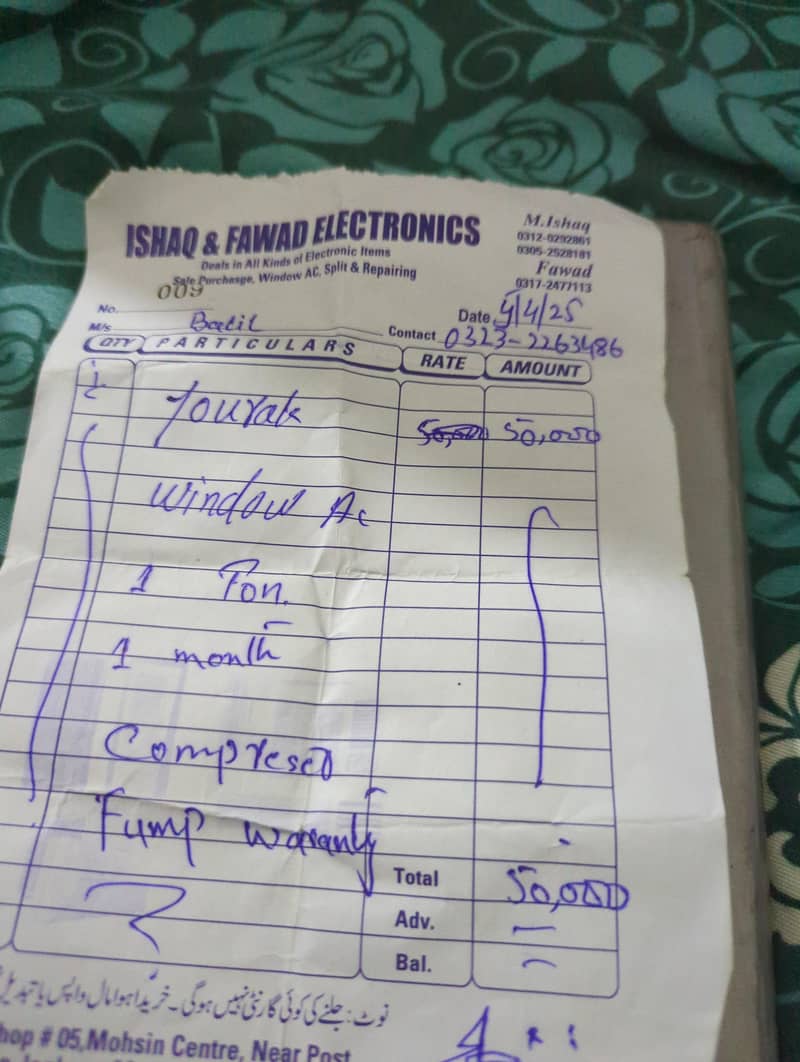 ISHAQ & FAWAD ELECTRONICS
Deals in All Kinds of Electronic Items
Sale Porchasge, Window AC, Split & Repairing
M.Ishaq
0312-0292861
0305-2528181
Fawad
0317-2477113
009
No.
Date 4/4/25
M/s
Contact 0323-2263486
QTY PARTICULARS RATE AMOUNT
50,000 50,000
Window Ac
1 Ton.
1 month
Compreser
Fump waranty
Total 50,000
Adv. —
Bal. —
نوٹ: جلنے کی کوئی گارنٹی نہیں ہوگی۔ خریدا ہوا مال واپس یا تبدیل
hop # 05, Mohsin Centre, Near Post